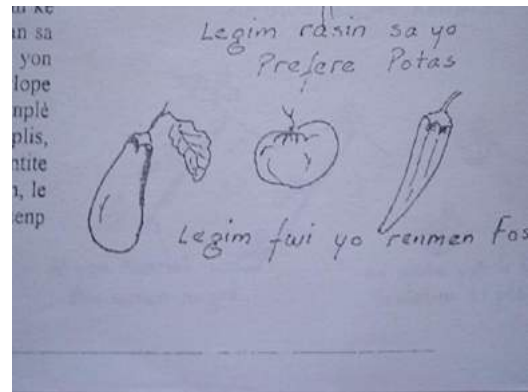 an sa
yon
lope
nplè
plis,
ntite
n, le
enp
Legim rasin sa yo
Prefere Potas
Legim fwi yo renmen Fos